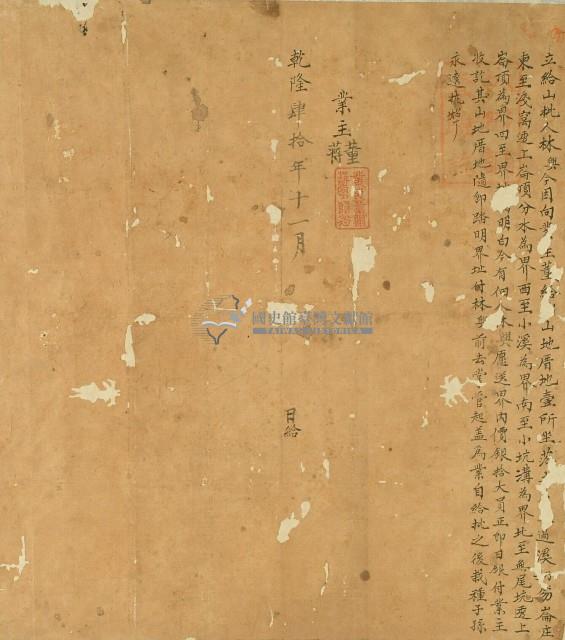 立給山批人林興今因向業主董給山地厝地壹所坐落過溪崙庄
東至淺窩透上崙頂分水為界西至小溪為界南至小坑溝為界北至無尾坑透上
崙頂為界四至界址明白今有佃人林興應送界內價銀拾大員正即日銀付業主
收訖其山地厝地隨即踏明界址付林興前去掌管起蓋為業自給批之後栽種子孫
永遠執照
業主董蔣
乾隆肆拾年十一月 日給
國史館臺灣文獻館
TAIWAN HISTORICA